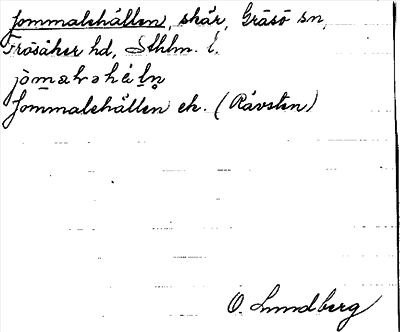 Jommalehällen, skär, Gräsö sn,
Frösåker hd, Sthlm. l.
Jommalehällen ek. (Rävsten)
O. Lundberg